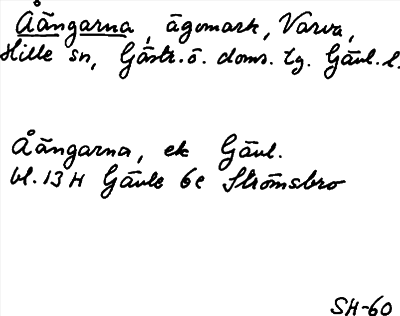 Åängarna, ägomark, Varva,
Hille sn, Gästr. ö. doms. tg. Gävl. l.
Åängarna, ek Gävl.
bl. 13 H Gävle 6e Strömsbro
SH-60